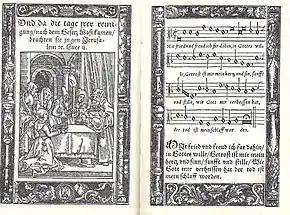 Und da die tage jrer reini-
gung/nach dem Gesetz Mosi kamen/
brachten sie jn gen Jerusa-
lem ꝛc. Luce ij.
It fried und freud ich far dahin, in Gottes wil-
le, Getrost ist mir mein hertz und sin, sanfft
und stille, wie Gott mir verheissen hat,
der tod ist mein schlaff wor den.
MIt fried und freud ich far dahin/
in Gottes wille/ Getrost ist mir mein
hertz und sinn/ sanfft und stille/ Wie
Gott mir verheissen hat der tod ist
mein schlaff worden.